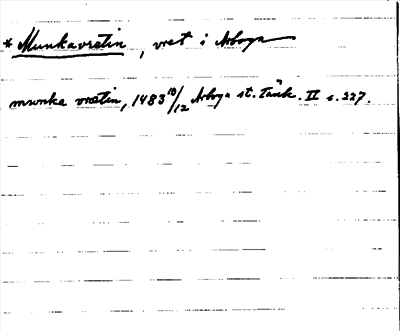 * Munkavretin, vret i Arboga
munka vretin, 1483 10/12 Arboga st. tänk. II s. 327.